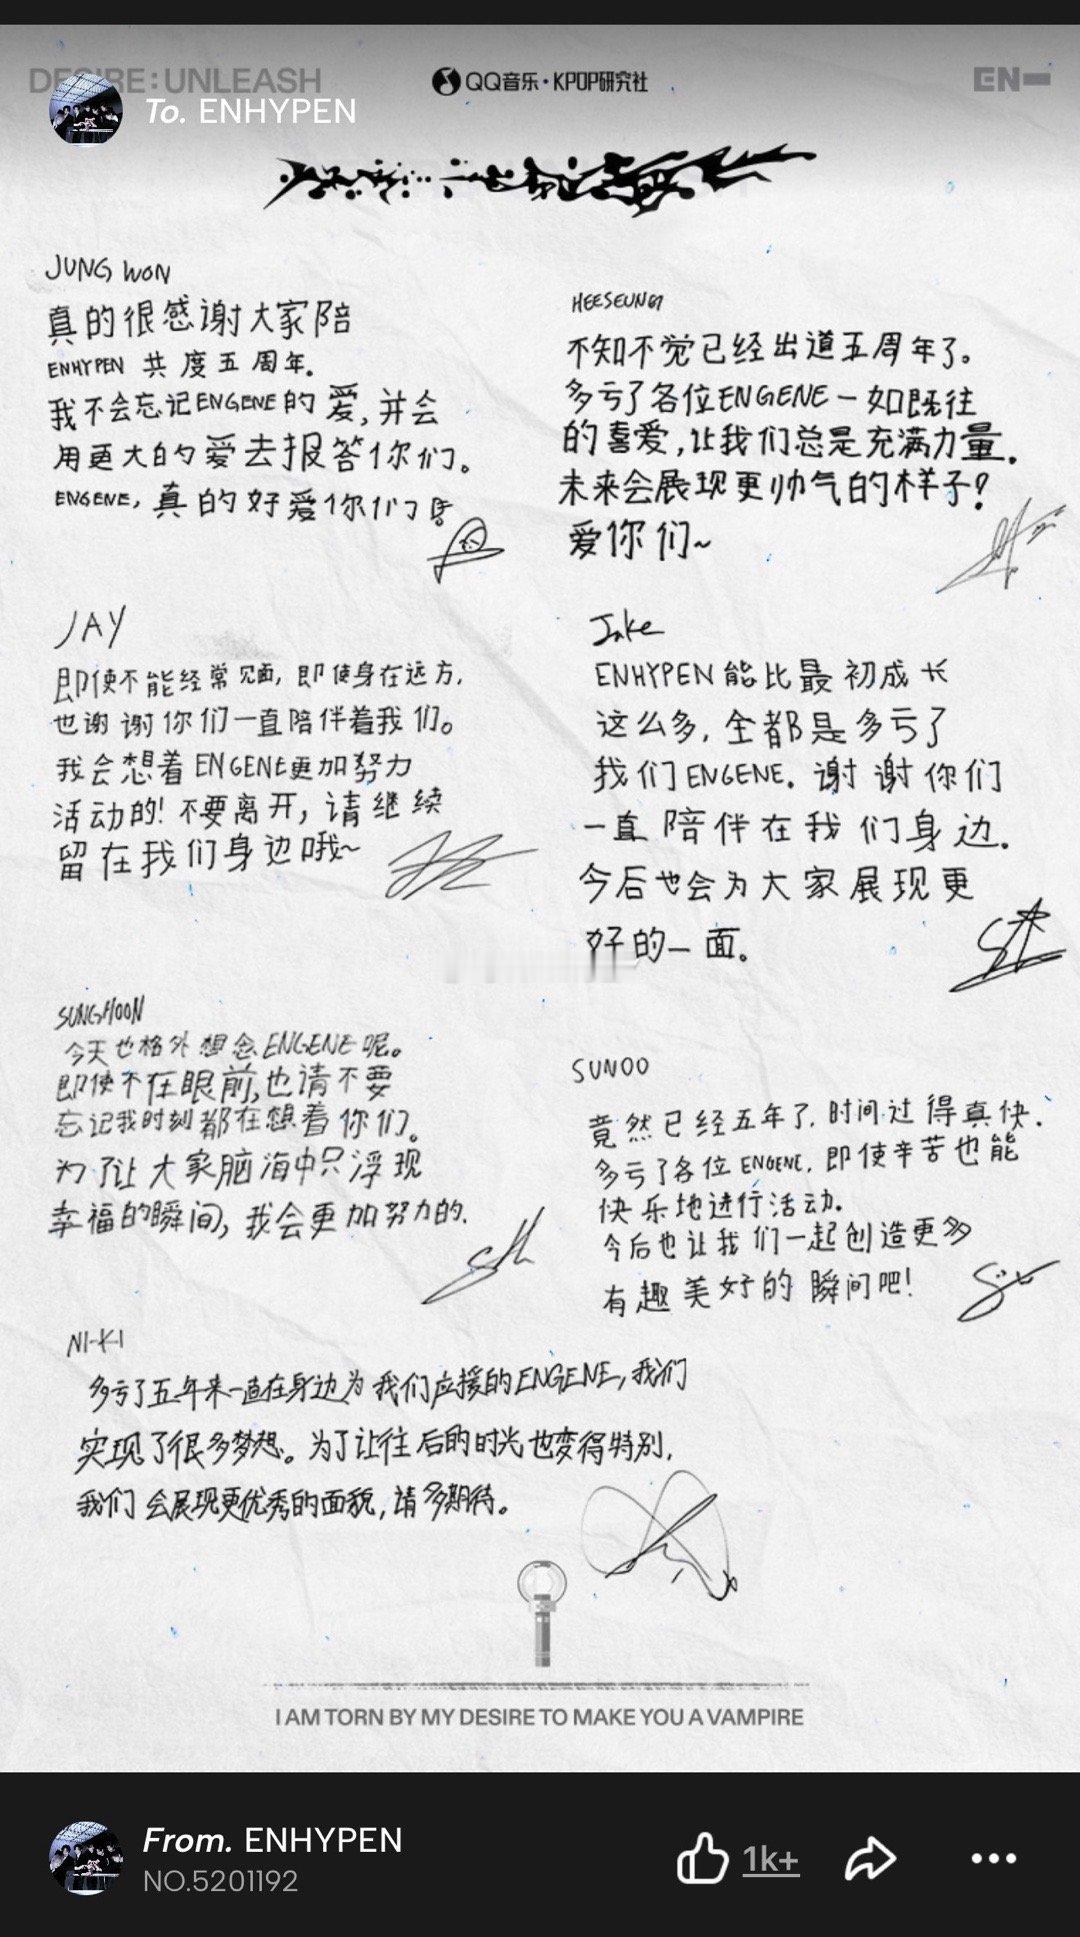 DESIRE:UNLEASH
QQ音乐·KPOP研究社
EN-
To. ENHYPEN
JUNGWON
真的很感谢大家陪
ENHYPEN 共度五周年.
我不会忘记ENGENE的爱,并会
用更大的爱去报答你们。
ENGENE,真的好爱你们
HEESEUNG
不知不觉已经出道五周年了。
多亏了各位ENGENE一如既往
的喜爱,让我们总是充满力量.
未来会展现更帅气的样子?
爱你们~
JAY
即使不能经常见面,即使身在远方,
也谢谢你们一直陪伴着我们。
我会想着ENGENE更加努力
活动的!不要离开,请继续
留在我们身边哦~
Jake
ENHYPEN能比最初成长
这么多,全都是多亏了
我们ENGENE.谢谢你们
一直陪伴在我们身边.
今后也会为大家展现更
好的一面。
SUNGHOON
今天也格外想念ENGENE呢。
即使不在眼前,也请不要
忘记我时刻都在想着你们。
为了让大家脑海中只浮现
幸福的瞬间,我会更加努力的.
SUNOO
竟然已经五年了,时间过得真快.
多亏了各位ENGENE,即使辛苦也能
快乐地进行活动.
今后也让我们一起创造更多
有趣美好的瞬间吧!
NI-KI
多亏了五年来一直在身边为我们应援的ENGENE,我们
实现了很多梦想。为了让往后的时光也变得特别,
我们会展现更优秀的面貌,请多期待。
I AM TORN BY MY DESIRE TO MAKE YOU A VAMPIRE
From. ENHYPEN
NO.5201192
1k+